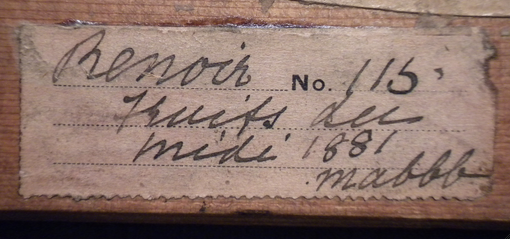 Renoir No. 115
Fruits du
midi 1881
mabbb